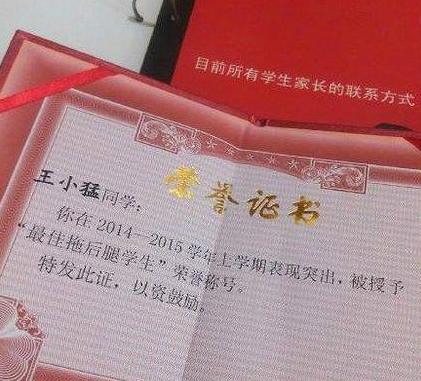 目前所有学生家长的联系方式
荣誉证书
王小猛同学:
你在2014—2015学年上学期表现突出,被授予
“最佳拖后腿学生”荣誉称号。
特发此证,以资鼓励。